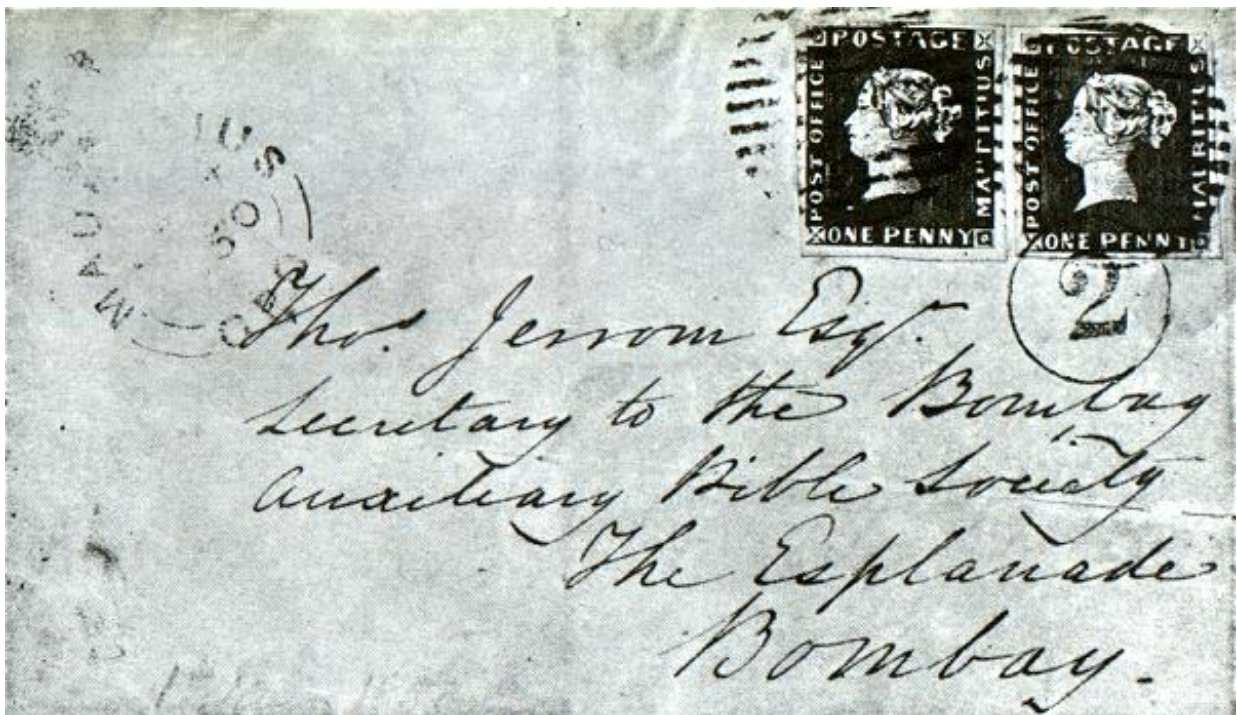 POSTAGE
POST OFFICE
ONE PENNY
POSTAGE
POST OFFICE
MAURITIUS
ONE PENNY
2
50
Tho.s Jerrom Esq.r
Secretary to the Bombay
Auxiliary Bible Society
The Esplanade
Bombay.